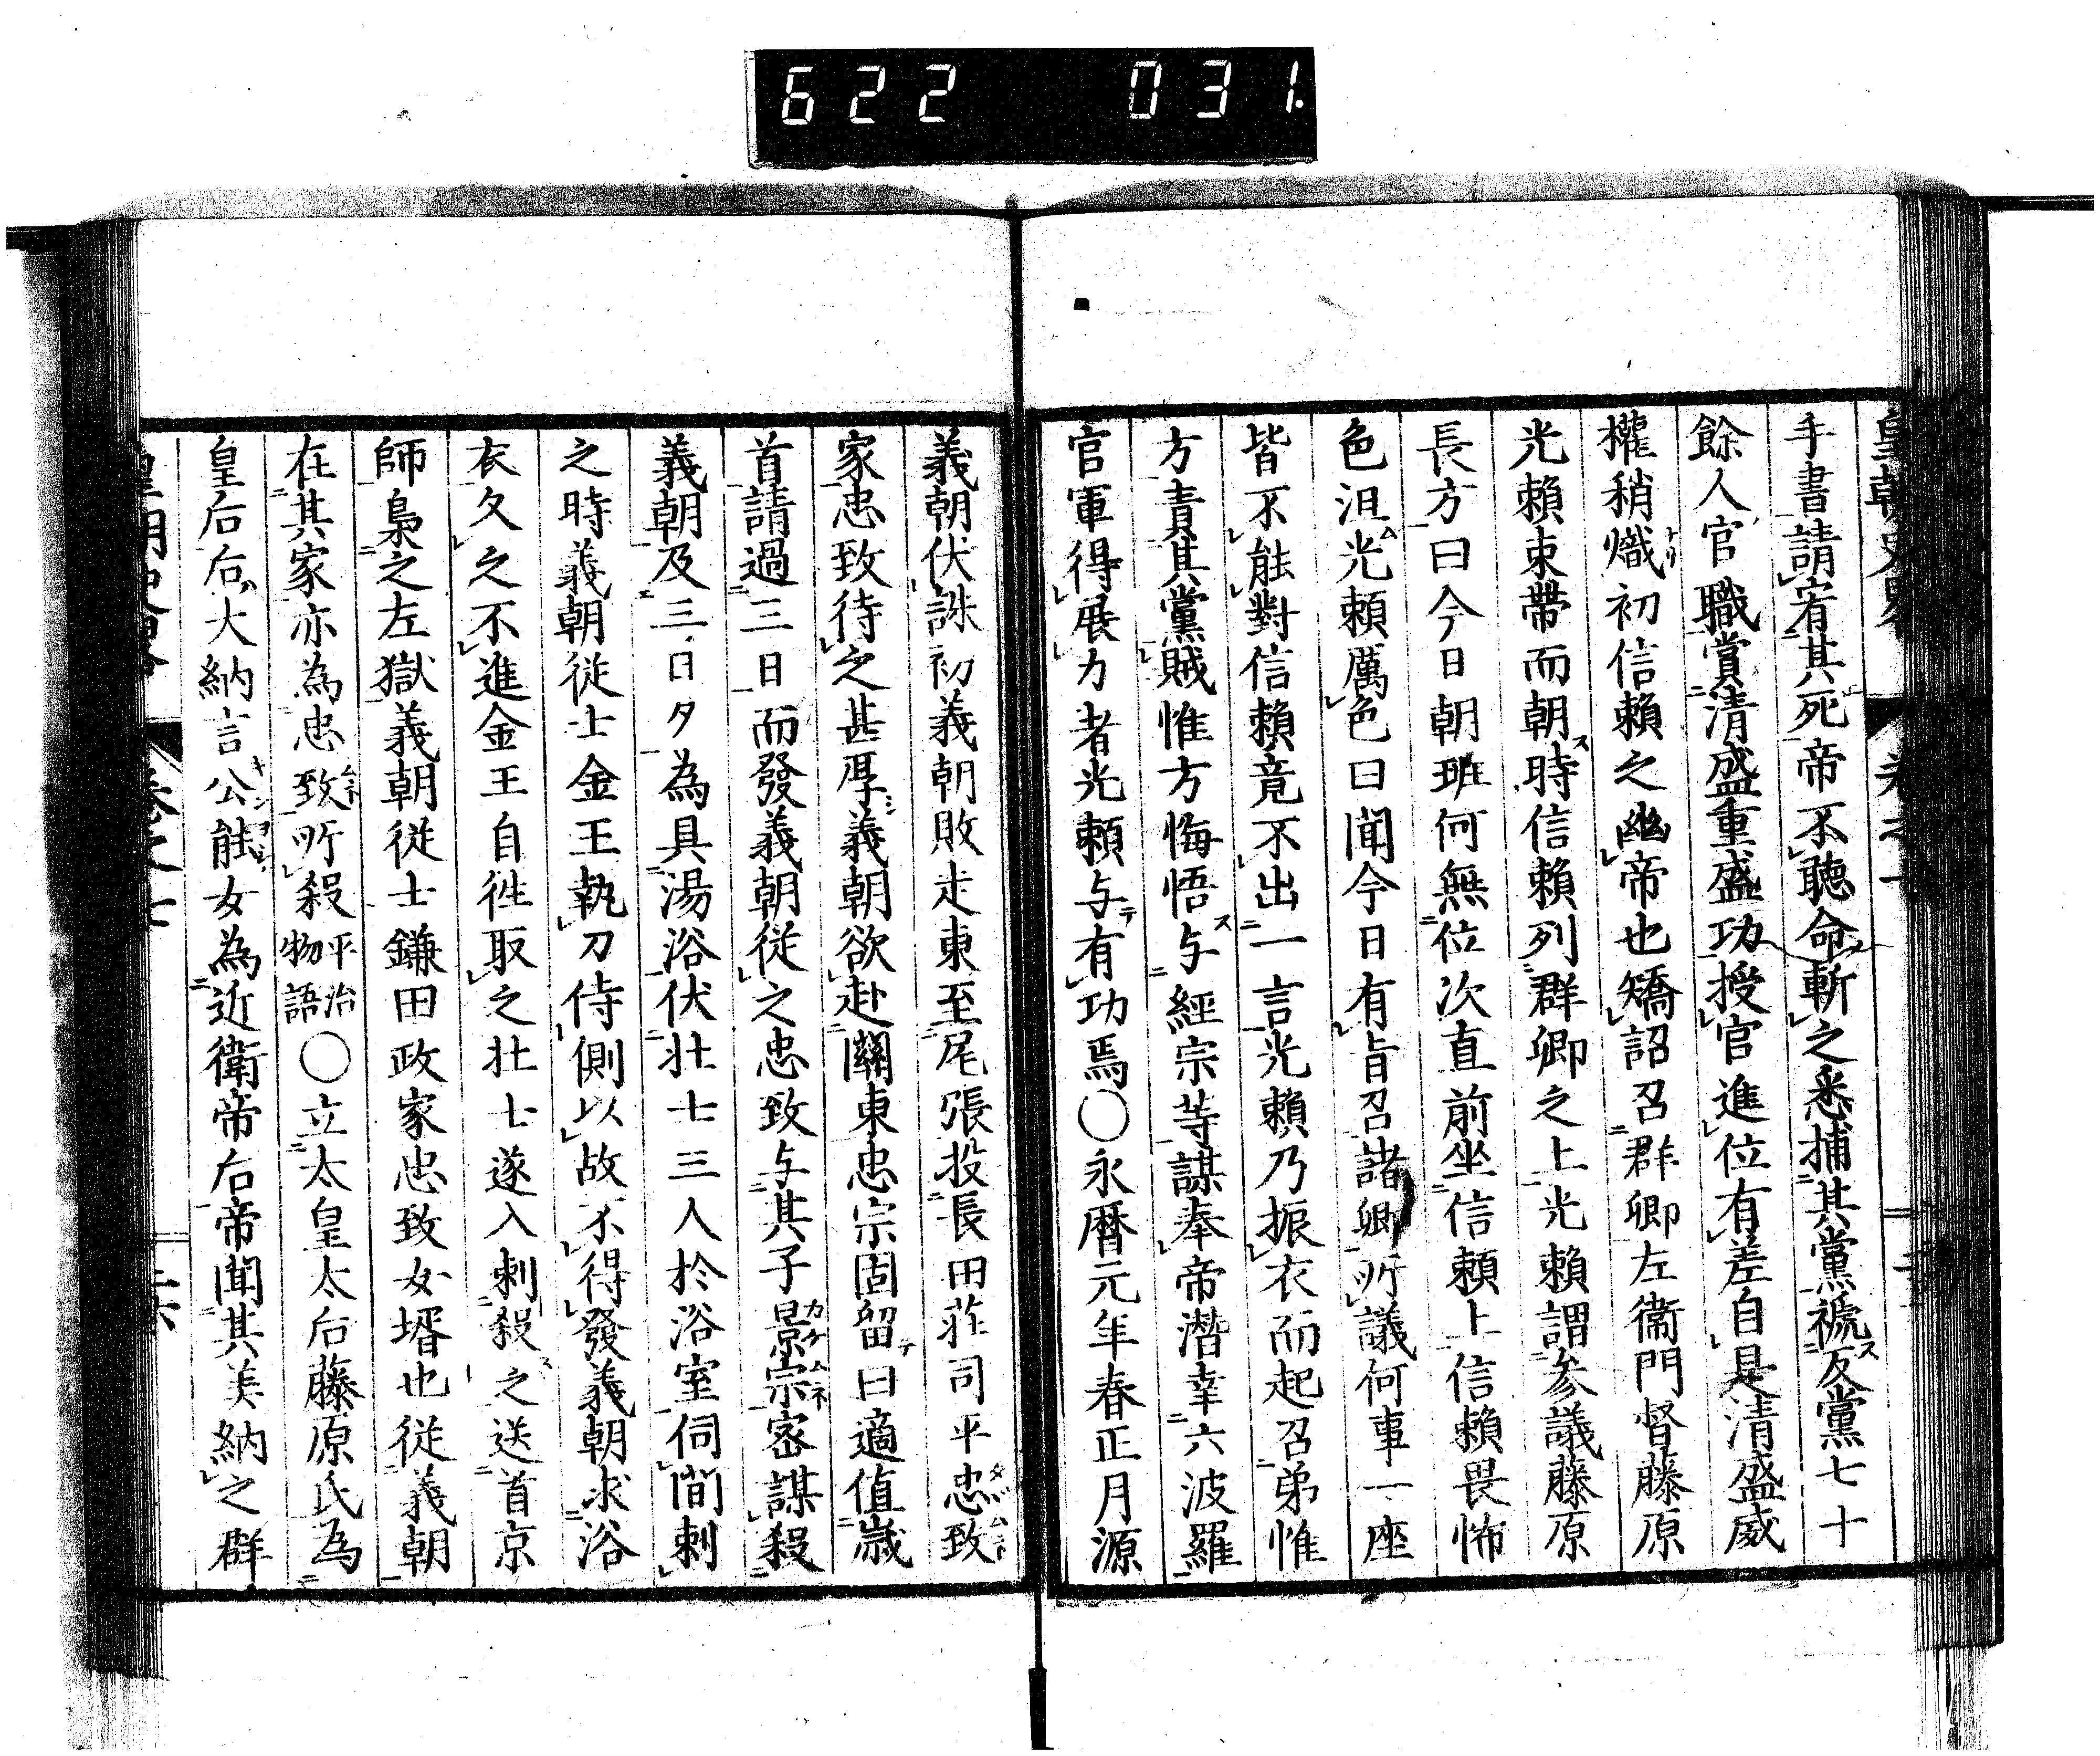 622 031.
手書請宥其死帝不聽命斬之悉捕其黨褫反黨七十
餘人官職賞清盛重盛功授官進位有差自是清盛威
權稍熾初信賴之幽帝也矯詔召群卿左衞門督藤原
光賴束帶而朝時信賴列群卿之上光賴謂參議藤原
長方曰今日朝班何無位次直前坐信賴上信賴畏怖
色沮光賴厲色曰聞今日有旨召諸卿所議何事一座
皆不能對信賴竟不出一言光賴乃振衣而起召弟惟
方責其黨賊惟方悔悟与經宗等謀奉帝潛幸六波羅
官軍得展力者光賴与有功焉〇永曆元年春正月源
義朝伏誅初義朝敗走東至尾張投長田莊司平忠致
家忠致待之甚厚義朝欲赴關東忠宗固留曰適值歲
首請過三日而發義朝從之忠致与其子景宗密謀殺
義朝及三日夕為具湯浴伏壯士三人於浴室伺間刺
之時義朝從士金王執刀侍側以故不得發義朝求浴
衣久之不進金王自往取之壯士遂入刺殺之送首京
師梟之左獄義朝從士鎌田政家忠致女壻也從義朝
在其家亦為忠致所殺平治物語〇立太皇太后藤原氏為
皇后后大納言公能女為近衛帝后帝聞其美納之群